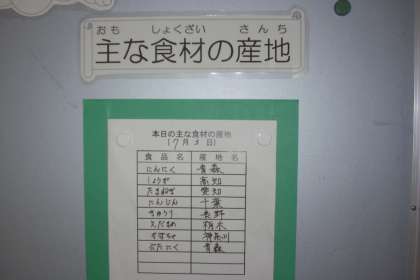 おも しょくざい さんち
主な食材の産地
本日の主な食材の産地
(7月3日)
食品名 産地名
にんにく 青森
しょうが 高知
たまねぎ 愛知
にんじん 千葉
きゅうり 長野
えだまめ 栃木
かぼちゃ 神奈川
ぶたにく 青森